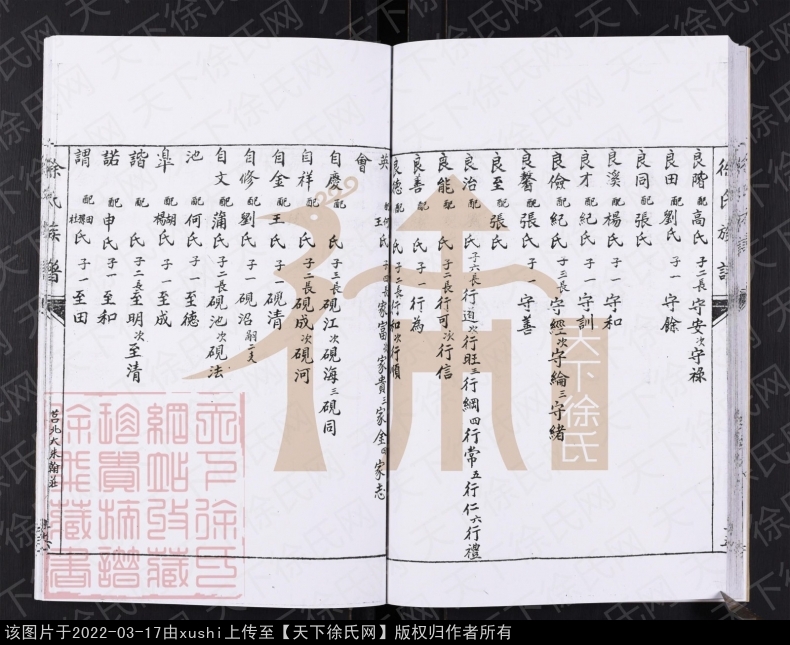 良階 配高氏 子二長守安次守祿
良田 配劉氏 子一 守餘
良同 配張氏
良溪 配楊氏 子一 守和
良才 配紀氏 子一 守訓
良儉 配紀氏 子三長守經次守綸三守緒
良馨 配張氏 子一 守善
良至 配張氏
良治 配 氏 子六長行道次行旺三行綱四行常五行仁六行禮
良能 配 氏 子二長行可次行信
良善 配 氏 子一 行為
良德 配 氏 子二長行和次行順
英 配王氏 子四長家富次家貴三家金四家志
會
自慶 配 氏 子三長硯江次硯海三硯同
自祥 配 氏 子二長硯成次硯河
自金 配王氏 子一 硯清
自修 配劉氏 子一 硯沼
自文 配蒲氏 子二長硯池次硯法
池 配何氏 子一 至德
皐 配胡楊氏 子一 至成
諧 配 氏 子二長至明次至清
諾 配申氏 子一 至和
謂 配 氏 子一 至田
徐氏族譜
莒北大朱翰莊
徐氏族譜
天下徐氏
天下徐氏网
该图片于2022-03-17由xushi上传至【天下徐氏网】版权归作者所有